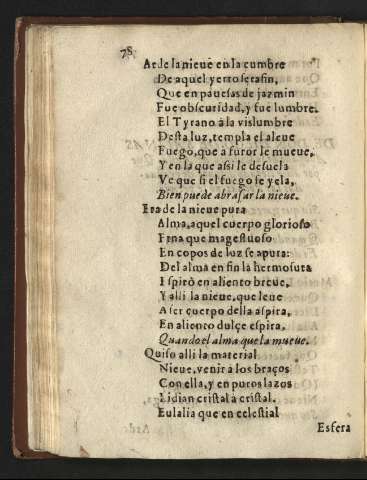 78
Arde la nieue en la cumbre
De aquel yerto serafin,
Que en pauesas de jazmin
Fue obscuridad, y fue lumbre.
El Tyrano à la vislumbre
Desta luz, templa el aleue
Fuego, que à furor le mueue,
Y en la que assi le desuela
Ve que si el fuego se yela,
Bien puede abrasar la nieue.
Era de la nieue pura
Alma, aquel cuerpo glorioso
Vrna que magestuoso
En copos de luz se apura:
Del alma en fin la hermosura
Espirò en aliento breue,
Y alli la nieue, que leue
A ser cuerpo della aspira,
En aliento dulçe espira,
Quando el alma que la mueue.
Quiso alli la material
Nieue, venir à los braços
Con ella, y en puros lazos
Lidian cristal à cristal.
Eulalia que en celestial
Esfera